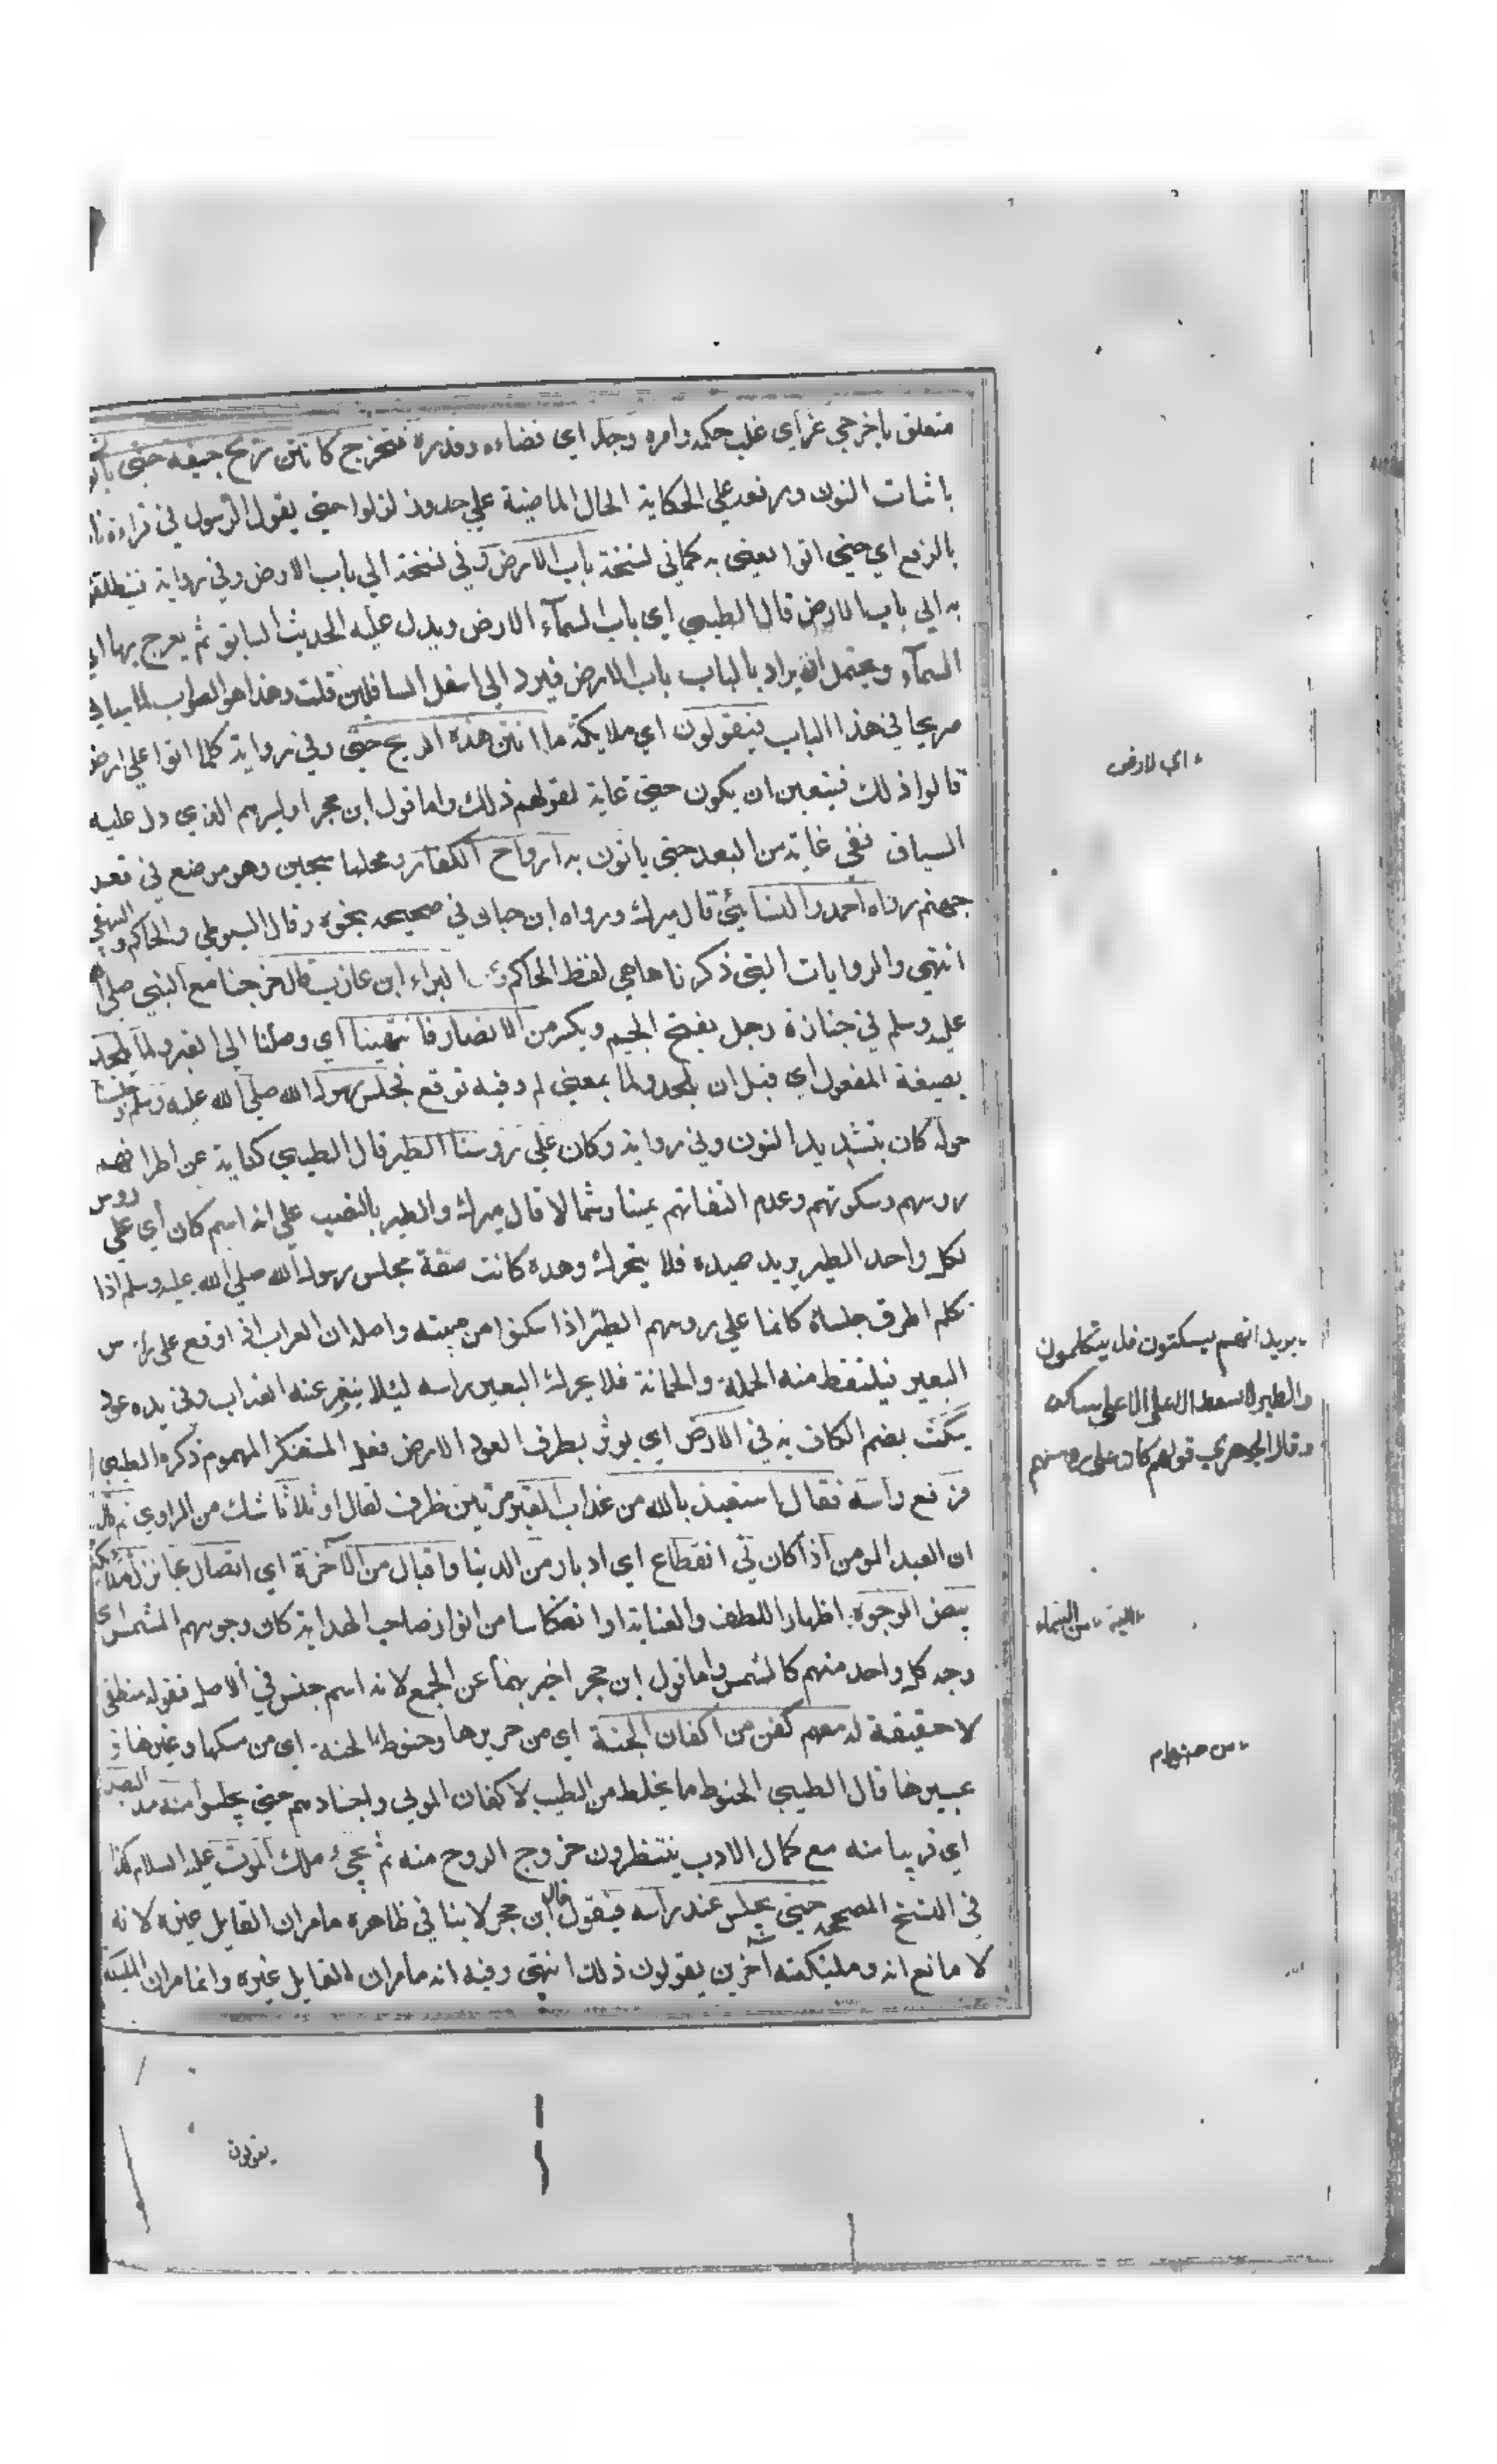 متعلق باخرجي عز اي غلب حكمه وامره وجل اي قضاءه وقدره فتخرج كانتن ريح جيفة حتى يأتو
باثبات النون ورفعه علي الحكاية الحال الماضية علي حد وزلزلوا حتي يقول الرسول في قراءة نا
بالرفع اي حتي اتوا يعني به كما في نسخة باب الارض وفي نسخة الي باب الارض وفي رواية فينطلقو
به الي باب الارض قال الطيبي اي باب السمآء الارض ويدل عليه الحديث السابق ثم يعرج بها الي
السمآء ويحتمل ان يراد بالباب باب الارض فيرد الي اسفل السافلين قلت وهذا هو الصواب لما سياتي
صريحا في هذا الباب فيقولون اي ملايكة ما انتن هذه الريح حتى وفي رواية كلما اتوا علي ارض
قالوا ذلك فيتعين ان يكون حتي غاية لقولهم ذلك واما قول ابن حجر او ليرهم الذي دل عليه
السياق ففي غاية من البعد حتي ياتون به ارواح الكفار ومحلها سجين وهو موضع في قعر
جهنم رواه احمد والنسايي قال ميرك ورواه ابن حبان في صحيحه بنحوه وقال السيوطي والحاكم والبيهقي
انتهي والروايات التي ذكرناها هي لفظ الحاكم وعن البراء ابن عازب قال خرجنا مع النبي صلي الله
عليه وسلم في جنازة رجل بفتح الجيم ويكسر من الانصار فانتهينا اي وصلنا الي القبر ولما يلحد
بصيغة المفعول اي قبل ان يلحد ولما بمعني لم وفيه توقع فجلس رسول الله صلي الله عليه وسلم وجلسنا
حوله كان بتشديد النون وفي رواية وكان علي رؤسنا الطير قال الطيبي كناية عن اطراقهم
رؤسهم وسكوتهم وعدم التفاتهم يمينا وشمالا قال ميرك والطير بالنصب علي انه اسم كان اي علي روس
لكل واحد الطير يريد صيده فلا يتحرك وهذه كانت صفة مجلس رسول الله صلي الله عليه وسلم اذا
تكلم اطرق جلساؤه كانما علي رؤسهم الطير اذا سكتوا من هيبته واصله ان الغراب اذا وقع علي رأس
البعير فيلتقط منه الحلمة والحمانة فلا يحرك البعير راسه ليئلا ينفر عنه الغراب وفي يده عود
ينكت بضم الكاف به في الارض اي يوثر بطرف العود الارض فعل المتفكر المهموم ذكره الطيبي
فرفع راسه فقال استعيذ بالله من عذاب القبر مرتين ظرف لقال او ثلاثا شك من الراوي ثم قال
ان العبد المومن اذا كان في انقطاع اي ادبار من الدنيا واقبال من الآخرة اي اتصال
بيض الوجوه اظهارا للطف والعناية او انعكاسا من انوار صاحب الهداية كان وجوههم الشمس اي
وجه كل واحد منهم كالشمس واما قول ابن حجر اخبر بها عن الجمع لانه اسم جنس في الاصل فقوله منطقي
لا حقيقة له معهم كفن من اكفان الجنة اي من حريرها وحنوط الجنة اي من مسكها وعنبرها و
عبيرها قال الطيبي الحنوط ما يخلط من الطيب لاكفان الموتي واجسادهم حتي يجلسوا منه مد البصر
اي قريبا منه مع كمال الادب ينتظرون خروج الروح منه ثم يجيء ملك الموت عليه السلام كذا
في النسخ المصححة حتي يجلس عند راسه فيقول قال ابن حجر لا ينافي ظاهره ما مر ان القايل غيره لانه
لا مانع انه وملئكته آخرين يقولون ذلك انتهي وفيه انه ما مر ان القايل غيره وانما مر ان الملئكة
اي لارض
يريد انهم يسكتون فلا يتكلمون
والطير لا تسقط الا علي ساكن
وقال الجوهري قولهم كان علي رؤسهم
من السماء
يقولون